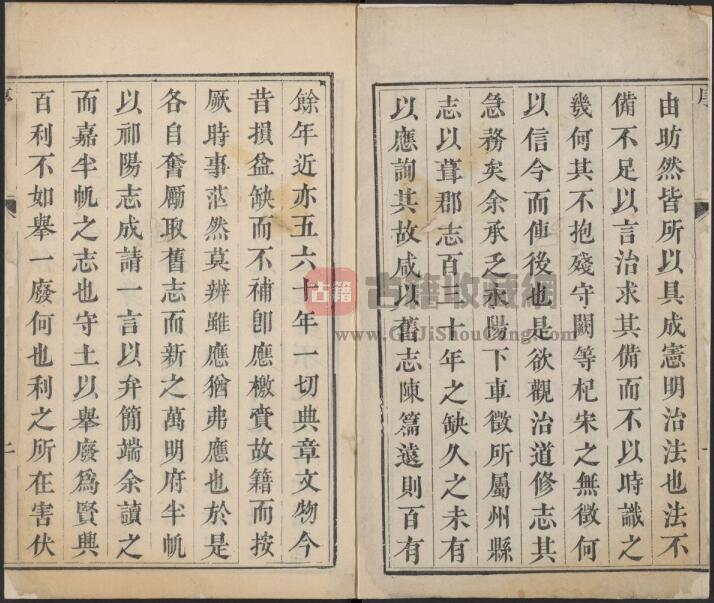 序
由昉然皆所以具成憲明治法也法不
備不足以言治求其備而不以時識之
幾何其不抱殘守闕等杞宋之無徵何
以信今而傳後也是欲觀治道修志其
急務矣余承乏永陽下車徵所屬州縣
志以葺郡志百三十年之缺久之未有
以應詢其故咸以舊志陳篇遠則百有
一
餘年近亦五六十年一切典章文物今
昔損益缺而不補卽應檄賫故籍而按
厥時事茫然莫辨雖應猶弗應也於是
各自奮厲取舊志而新之萬明府半帆
以祁陽志成請一言以弁簡端余讀之
而嘉半帆之志也守土以舉廢爲賢興
百利不如舉一廢何也利之所在害伏
序
二
古籍 古籍收藏網
www.GuJiShouCang.com